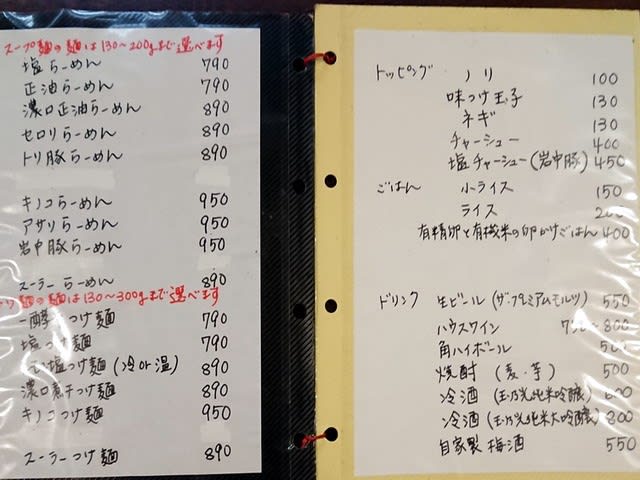 スープ麺の麺は130〜200gまで選べます
塩らーめん 790
正油らーめん 790
濃口正油らーめん 890
セロリらーめん 890
トリ豚らーめん 890
キノコらーめん 950
アサリらーめん 950
岩中豚らーめん 950
スーラーらーめん 890
麺の麺は130〜300gまで選べます
つけ麺 790
塩つけ麺 790
塩つけ麺(冷or温) 890
濃口煮干つけ麺 890
キノコつけ麺 950
スーラーつけ麺 890
トッピング ノリ 100
味つけ玉子 130
ネギ 130
チャーシュー 400
塩チャーシュー(岩中豚) 450
ごはん 小ライス 150
ライス 200
有精卵と有機米の卵かけごはん 400
ドリンク 生ビール(ザ・プレミアムモルツ) 550
ハウスワイン 800
角ハイボール
焼酎 (麦・芋) 500
冷酒(玉乃光純米吟醸) 600
冷酒(玉乃光純米大吟醸) 800
自家製 梅酒 550